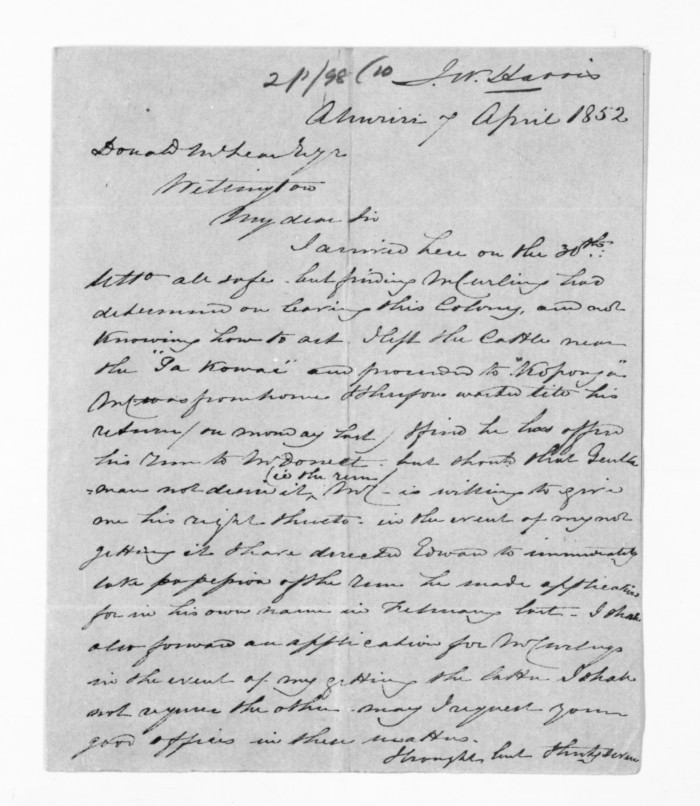 2/1/98 (10 J. W. Harris
Ahuriri 7 April 1852
Donald McLean Esqr
Wellington
My dear Sir
I arrived here on the 30th
ulto all safe - but finding Mr Curling had
determined on leaving this Colony, and not
knowing how to act I left the Cattle near
the "Pa Kowai" and proceeded to "Kopanga"
Mr C was from home I therefore waited till his
return (on monday last) I find he has offered
his run to Mr Donnell - but should that Gentle
(ie the run)
-man not desire it, Mr C - is willing to give
me his right thereto - in the event of my not
getting it I have directed Edwan to immediately
take possession of the run he made application
for in his own name in February last - I shall
also forward an application for Mr Curlings
in the event of my getting the latter I shall
not require the other - may I request your
good offices in these matters.
I brought but Thirty Seven